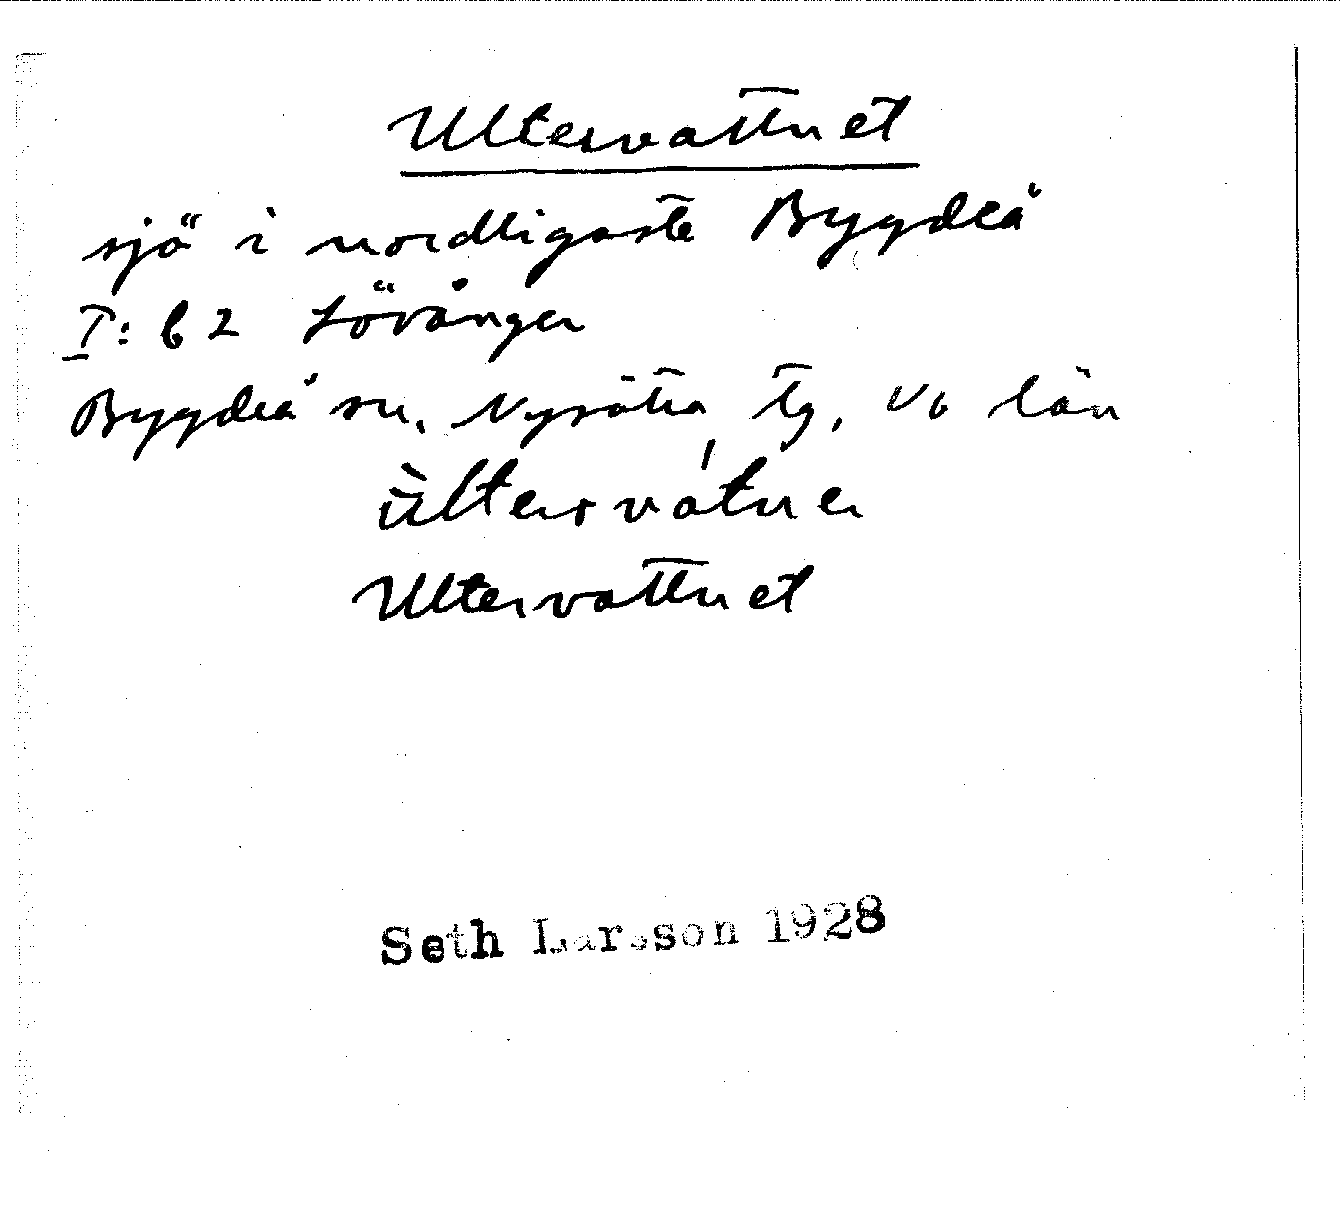 Ultervattnet
sjö i nordligaste Bygdeå
I: b 2 Lövånger
Bygdeå sn, Nysätra tg, Vb län
ùltervátne
Ultervattnet
Seth Larsson 1928